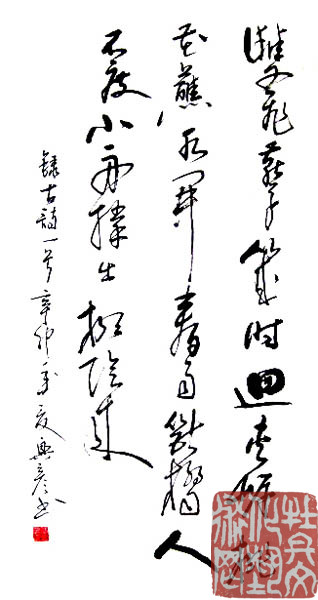 雙飛燕子幾时迴夾岸桃
花蘸水開春雨斷橋人
不度小舟撑出柳陰來
録古詩一首辛卯年夏興彦书